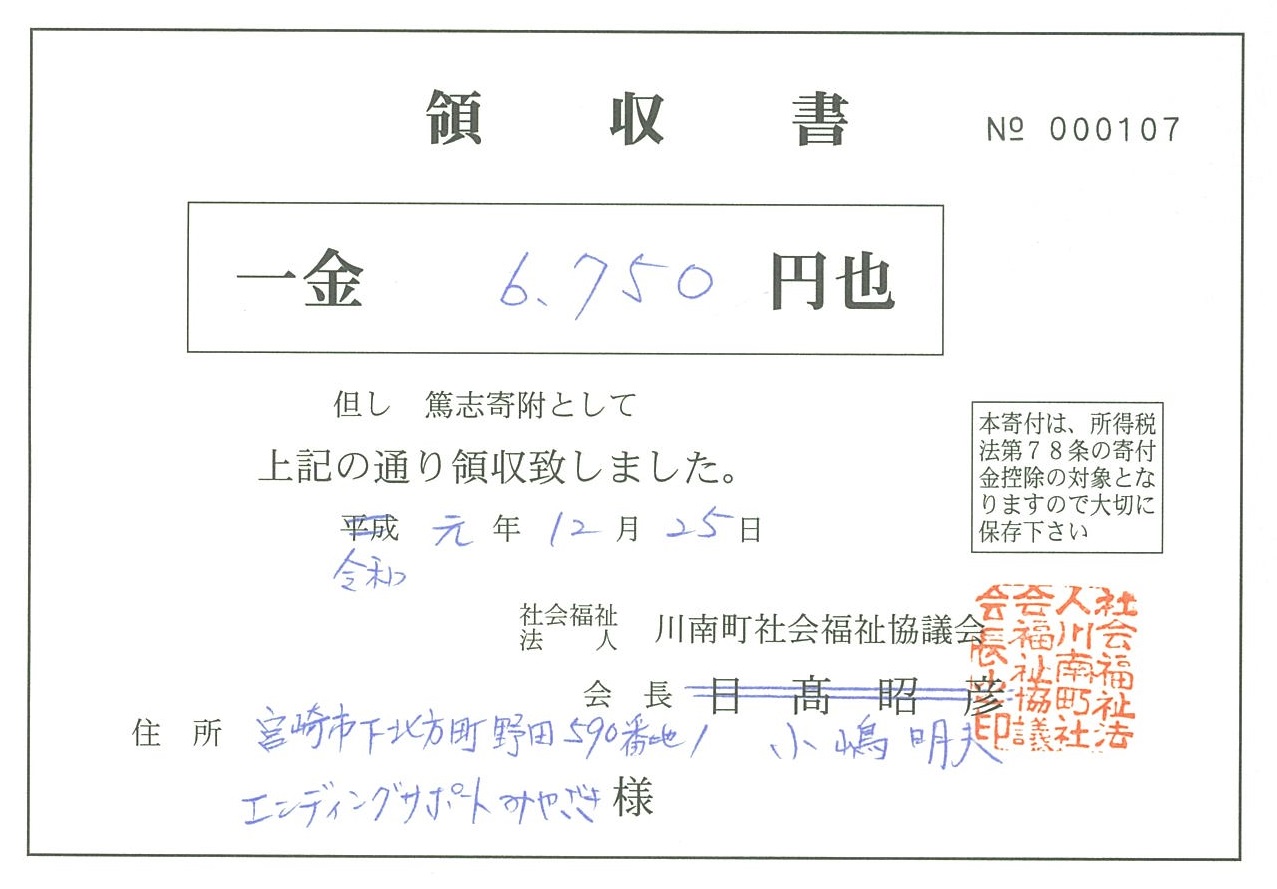 領収書
№ 000107
一金 6,750 円也
但し 篤志寄附として
上記の通り領収致しました。
平成 元 年 12 月 25 日
令和
本寄付は、所得税
法第78条の寄付
金控除の対象とな
りますので大切に
保存下さい
社会福祉
法人
川南町社会福祉協議会
会 長 日髙昭彦
小嶋 明夫
社会福祉法
人川南町社
会福祉協議
会長之印
住 所 宮崎市下北方町野田590番地1
エンディングサポートみやざき 様